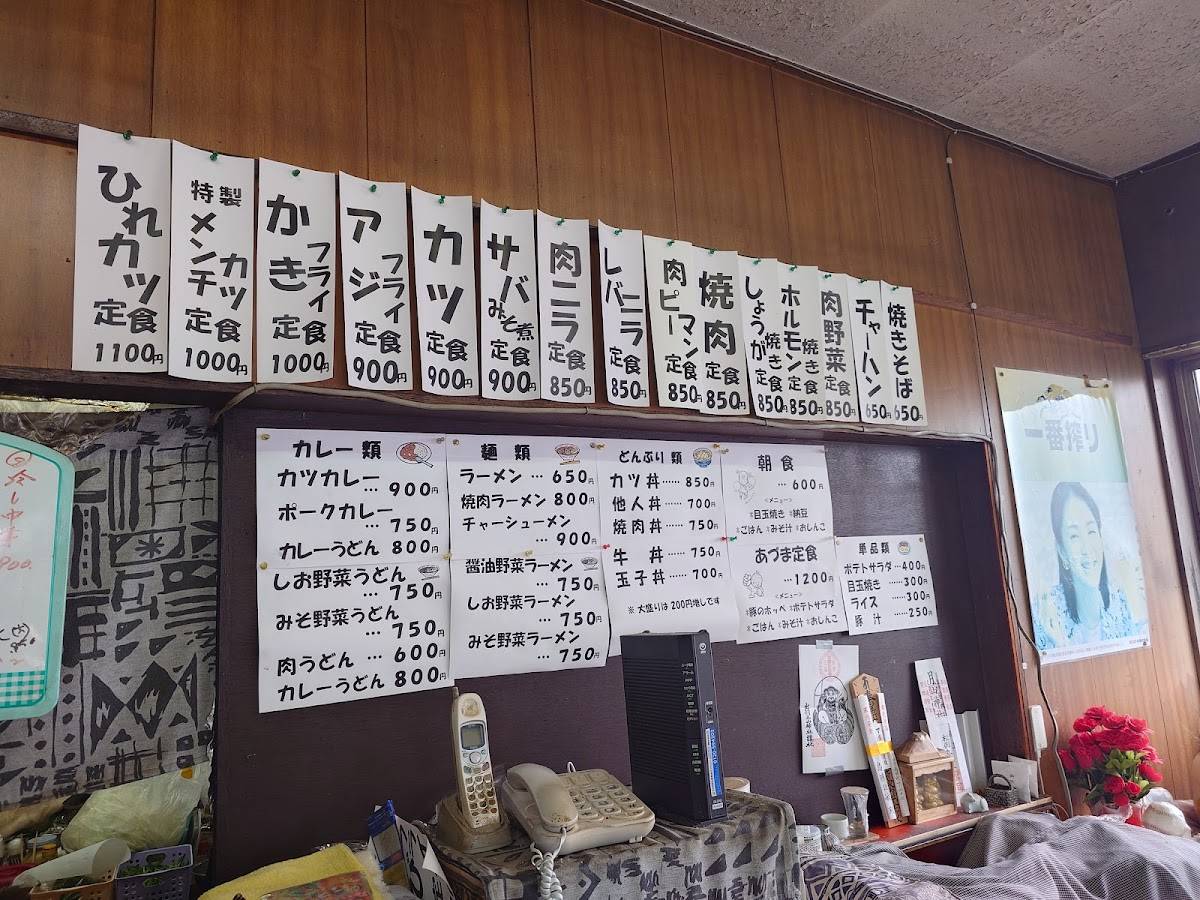 ひれカツ定食
1100円
特製
メンチカツ定食
1000円
かきフライ定食
1000円
アジフライ定食
900円
カツ定食
900円
サバみそ煮定食
900円
肉ニラ定食
850円
レバニラ定食
850円
肉ピーマン定食
850円
焼肉定食
850円
しょうが焼き定食
850円
ホルモン焼き定食
850円
肉野菜定食
850円
チャーハン
650円
焼きそば
650円
カレー類
カツカレー
… 900円
ポークカレー
… 750円
カレーうどん 800円
しお野菜うどん
… 750円
みそ野菜うどん
… 750円
肉うどん … 600円
カレーうどん 800円
麺類
ラーメン … 650円
焼肉ラーメン 800円
チャーシューメン
… 900円
醤油野菜ラーメン
… 750円
しお野菜ラーメン
… 750円
みそ野菜ラーメン
… 750円
どんぶり類
カツ丼……850円
他人丼……700円
焼肉丼……750円
牛丼……750円
玉子丼……700円
※大盛りは200円増しです
朝食
… 600円
<メニュー>
*目玉焼き *納豆
*ごはん *みそ汁 *おしんこ
あづま定食
… 1200円
<メニュー>
*豚のホッペ *ポテトサラダ
*ごはん *みそ汁 *おしんこ
単品類
ポテトサラダ…400円
目玉焼き……300円
ライス……300円
豚汁……250円
一番搾り
冷し中華
900.